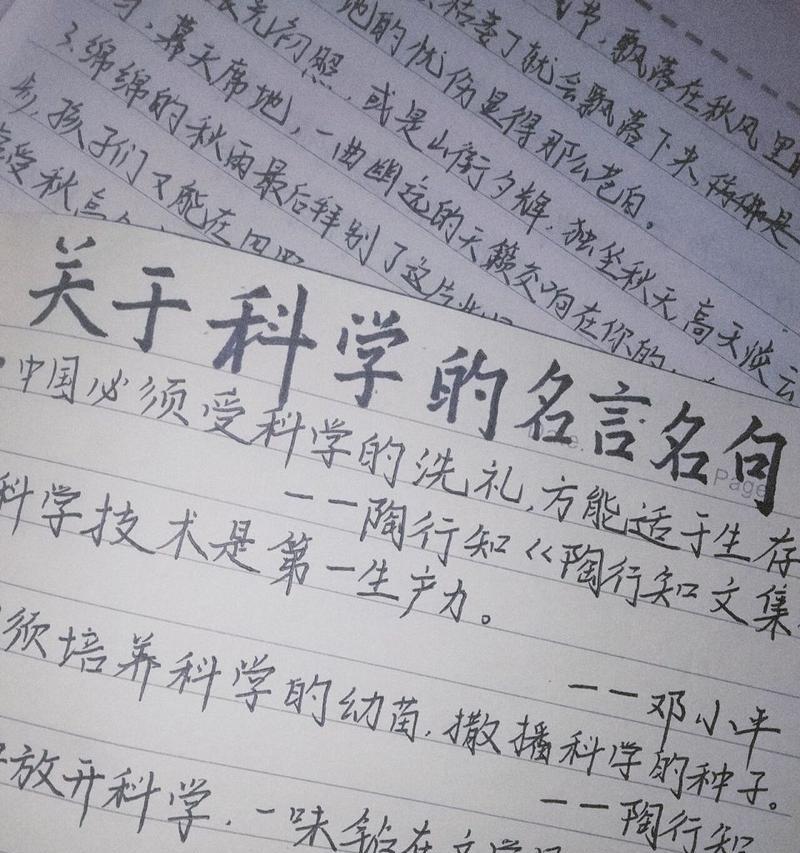 节,飘落在秋风里
枯萎了就会飘落下来,
地的忧伤显得那么苍白。
向照,或是山衔夕辉,独坐秋天,高天淡云
,幕天席地,一曲幽远的天籁交响在你的
3.绵绵的秋雨最后拜别了这片
,孩子们又能在田野
受秋高
关于科学的名言名句
Page
中国必须受科学的洗礼,方能适于生存
——陶行知《陶行知文集
科学技术是第一生产力。
——邓小平
须培养科学的幼苗,撒播科学的种子。
——陶行知
放开科学,一味